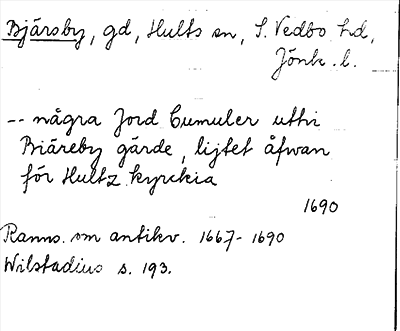 Bjärsby, gd, Hults sn, S. Vedbo hd,
Jönk. l.
-- några Jord Cumuler uthi
Biäreby gärde, lijtet åfwan
för Hultz kyrckia
1690
Ranns. om antikv. 1667-1690
Wilstadius s. 193.